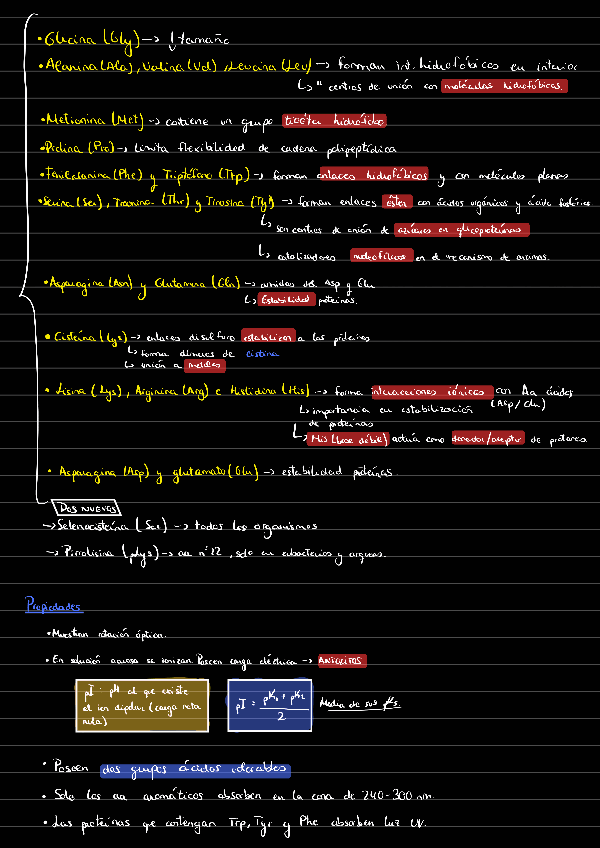 • Glicina (Gly) → ↓ tamaño
• Alanina (Ala), Valina (Val), Leucina (Leu) → forman int. hidrofóbicas en interior
↳ " centros de unión con moléculas hidrofóbicas.
• Metionina (Met) → contiene un grupo tioéter hidrófobo
• Prolina (Pro) → limita flexibilidad de cadena polipeptídica
• Fenilalanina (Phe) y Triptófano (Trp) → forman enlaces hidrofóbicos y con moléculas planas
• Serina (Ser), Treonina (Thr) y Tirosina (Tyr) → forman enlaces éster con ácidos orgánicos y ácido fosfórico
↳ son centros de unión de azúcares en glicoproteínas
↳ catalizadores nucleofílicos en el mecanismo de
• Asparagina (Asn) y Glutamina (Gln) → amidas de Asp y Glu
↳ Estabilidad proteinas.
• Cisteína (Cys) → enlaces disulfuro estabilizan a las proteinas
↳ forma dímeros de cistina
↳ unión a metales
• Lisina (Lys), Arginina (Arg) e Histidina (His) → forma interacciones iónicas con Aa ácidos
(Asp/Glu)
↳ importancia en estabilización
de proteínas
↳ His (base débil) actúa como donador/aceptor de protones
• Asparagina (Asp) y glutamato (Glu) → estabilidad proteínas.
DOS NUEVOS
→ Selenocisteína (Sec) → todos los organismos
→ Pirrolisina (pLys) → aa nº22, solo en eubacterias y arqueas.
Propiedades
• Muestran rotación óptica.
• En solución acuosa se ionizan. Poseen carga eléctrica → ANFOLITOS
pI: pH al que existe
el ion dipolar (carga neta
nula)
pI = pK₁ + pK₂ / 2
Media de sus pKs.
• Poseen dos grupos ácidos
• Solo los aa aromáticos absorben en la zona de 240-300 nm.
• Las proteínas que contengan Trp, Tyr y Phe absorben luz UV.